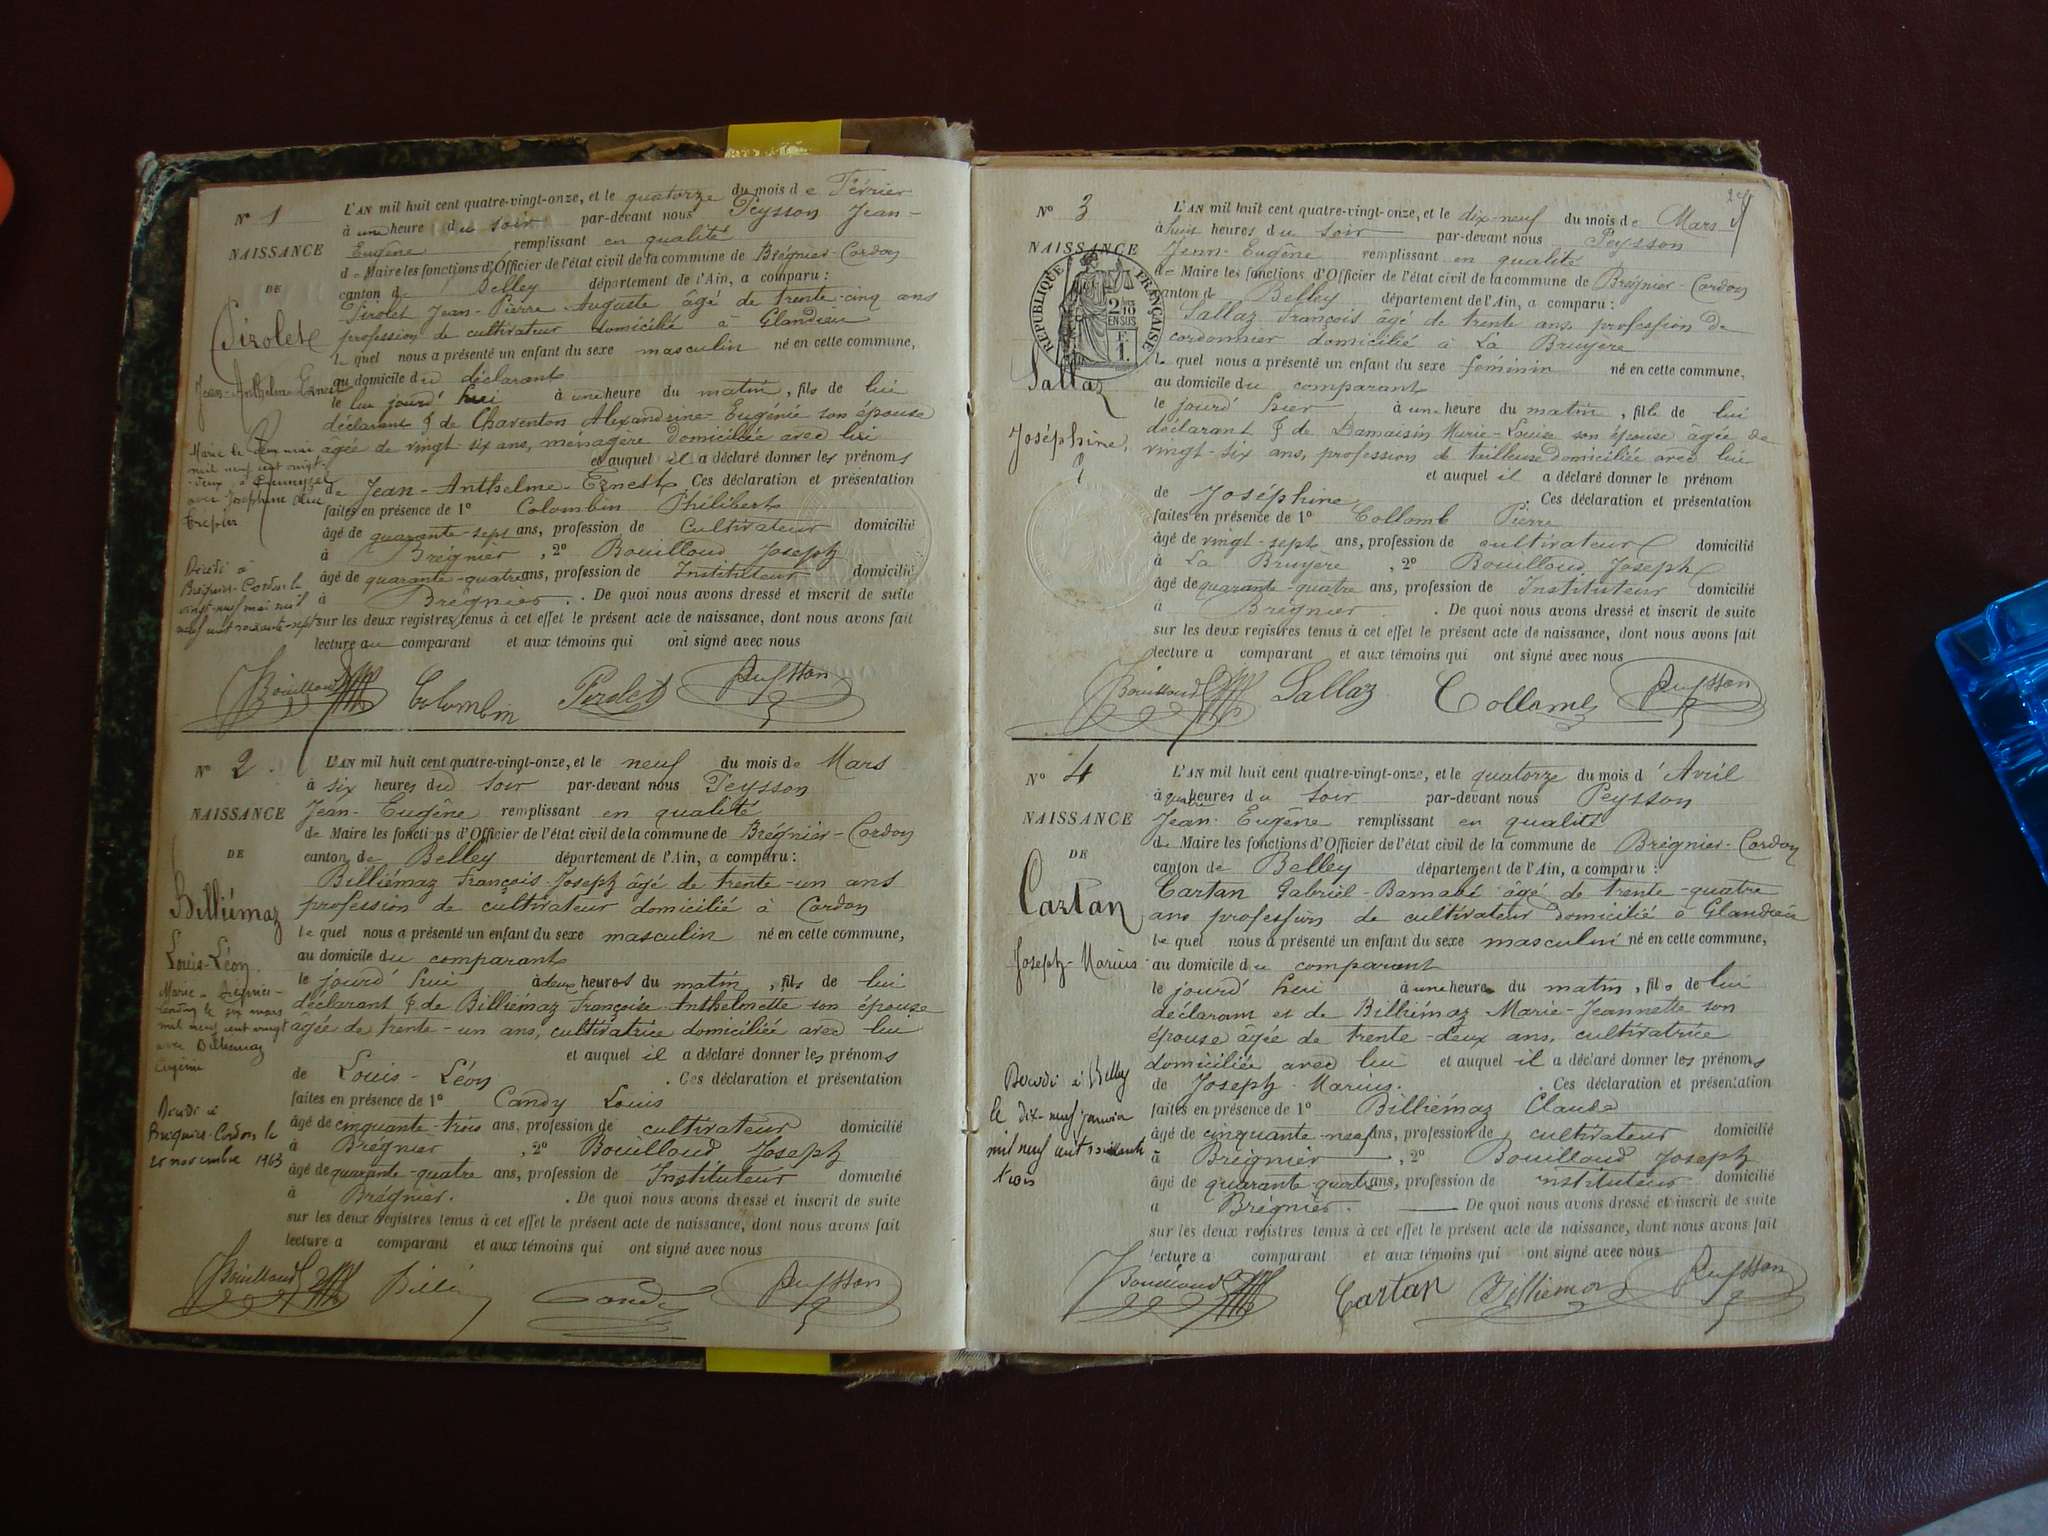 N° 1
NAISSANCE
DE
Pirolet
Jean-Anthelme-Ernest
L'AN mil huit cent quatre-vingt-onze, et le quatorze du mois de Février
à une heure du soir par-devant nous Peysson Jean-
Eugène remplissant en qualité
de Maire les fonctions d'Officier de l'état civil de la commune de Brégnier-Cordon
canton de Belley département de l'Ain, a comparu :
Pirolet Jean-Pierre Auguste âgé de trente-cinq ans
profession de cultivateur domicilié à Glandieu
le quel nous a présenté un enfant du sexe masculin né en cette commune,
au domicile du déclarant
le jourd'hui à une heure du matin, fils de lui
déclarant & de Charenton Alexandrine-Eugénie son épouse
âgée de vingt six ans, ménagère domiciliée avec lui
et auquel il a déclaré donner les prénoms
de Jean-Anthelme-Ernest. Ces déclaration et présentation
faites en présence de 1° Colombin Philibert
âgé de quarante-sept ans, profession de Cultivateur domicilié
à Brégnier, 2° Bouilloud Joseph
âgé de quarante-quatre ans, profession de Instituteur domicilié
à Brégnier. De quoi nous avons dressé et inscrit de suite
sur les deux registres tenus à cet effet le présent acte de naissance, dont nous avons fait
lecture au comparant et aux témoins qui ont signé avec nous
mil neuf cent vingt-
deux à
avec Joséphine
Décédé à
Brégnier-Cordon le
vingt-neuf mai mil
neuf cent soixante-sept
Bouilloud Colombin Pirolet Peysson
N° 2
NAISSANCE
DE
Billiémaz
Louis-Léon
L'AN mil huit cent quatre-vingt-onze, et le neuf du mois de Mars
à six heures du soir par-devant nous Peysson
Jean-Eugène remplissant en qualité
de Maire les fonctions d'Officier de l'état civil de la commune de Brégnier-Cordon
canton de Belley département de l'Ain, a comparu :
Billiémaz François-Joseph âgé de trente-un ans
profession de cultivateur domicilié à Cordon
le quel nous a présenté un enfant du sexe masculin né en cette commune,
au domicile du comparant
le jourd'hui à deux heures du matin, fils de lui
déclarant & de Billiémaz Françoise-Anthelmette son épouse
âgée de trente-un ans, cultivatrice domiciliée avec lui
et auquel il a déclaré donner les prénoms
de Louis-Léon. Ces déclaration et présentation
faites en présence de 1° Candy Louis
âgé de cinquante-trois ans, profession de cultivateur domicilié
à Brégnier, 2° Bouilloud Joseph
âgé de quarante-quatre ans, profession de Instituteur domicilié
à Brégnier. De quoi nous avons dressé et inscrit de suite
sur les deux registres tenus à cet effet le présent acte de naissance, dont nous avons fait
lecture a comparant et aux témoins qui ont signé avec nous
Marié à Brégnier-
Cordon le six mars
mil neuf cent vingt
avec Billiémaz
Décédé à
Brégnier-Cordon, le
novembre 1963
Bouilloud Billié Candy Peysson
N° 3
NAISSANCE
RÉPUBLIQUE FRANÇAISE
2/10
EN SUS
F.
1.
Sallaz
Joséphine
L'AN mil huit cent quatre-vingt-onze, et le dix-neuf du mois de Mars
à huit heures du soir par-devant nous Peysson
Jean-Eugène remplissant en qualité
de Maire les fonctions d'Officier de l'état civil de la commune de Brégnier-Cordon
canton de Belley département de l'Ain, a comparu :
Sallaz François âgé de trente ans profession de
cordonnier domicilié à La Bruyère
le quel nous a présenté un enfant du sexe féminin né en cette commune,
au domicile du comparant
le jourd'hier à une heure du matin, fille de lui
déclarant & de Damaisin Marie-Louise son épouse âgée de
vingt-six ans, profession de tailleuse domiciliée avec lui
et auquel il a déclaré donner le prénom
de Joséphine. Ces déclaration et présentation
faites en présence de 1° Collomb Pierre
âgé de vingt-sept ans, profession de cultivateur domicilié
à La Bruyère, 2° Bouilloud Joseph
âgé de quarante-quatre ans, profession de Instituteur domicilié
à Brégnier. De quoi nous avons dressé et inscrit de suite
sur les deux registres tenus à cet effet le présent acte de naissance, dont nous avons fait
lecture a comparant et aux témoins qui ont signé avec nous
Bouilloud Sallaz Collomb Peysson
N° 4
NAISSANCE
DE
Cartan
Joseph-Marius
L'AN mil huit cent quatre-vingt-onze, et le quatorze du mois d'Avril
à quatre heures du soir par-devant nous Peysson
Jean-Eugène remplissant en qualité
de Maire les fonctions d'Officier de l'état civil de la commune de Brégnier-Cordon
canton de Belley département de l'Ain, a comparu :
Cartan Gabriel-Barnabé âgé de trente-quatre
ans profession de cultivateur domicilié à Glandieu
le quel nous a présenté un enfant du sexe masculin né en cette commune,
au domicile du comparant
le jourd'hui à une heure du matin, fils de lui
déclarant et de Billiémaz Marie-Jeannette son
épouse âgée de trente-deux ans, cultivatrice
domiciliée avec lui et auquel il a déclaré donner les prénoms
de Joseph-Marius. Ces déclaration et présentation
faites en présence de 1° Billiémaz Claude
âgé de cinquante-neuf ans, profession de cultivateur domicilié
à Brégnier, 2° Bouilloud Joseph
âgé de quarante quatre ans, profession de instituteur domicilié
a Brégnier. De quoi nous avons dressé et inscrit de suite
sur les deux registres tenus à cet effet le présent acte de naissance, dont nous avons fait
lecture a comparant et aux témoins qui ont signé avec nous
Décédé à Belley
le dix-neuf janvier
mil neuf cent soixante
trois
Bouilloud Cartan Billiémaz Peysson